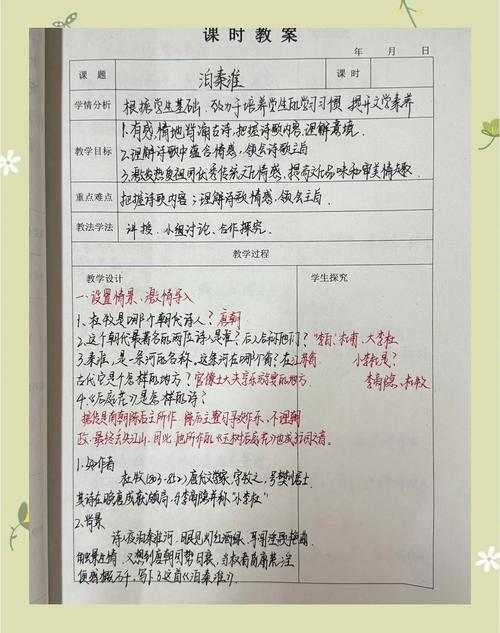 课时教案
年 月 日
课题 泊秦淮 课时
学情分析 根据学生基础,致力于培养学生的学习习惯 提升文学素养
教学目标 1.有感情地背诵古诗,把握诗歌内容,理解意境.
2.理解诗歌中蕴含情感,领会诗歌主旨
3.激发热爱祖国优秀传统文化情感,提高文化品味和审美情趣.
重点难点 把握诗歌内容;理解诗歌情感,领会主旨.
教法学法 讲授、小组讨论、合作探究.
教学过程
教学设计 学生探究
一、设置情景、激情导入
1、杜牧是哪个朝代诗人? 唐朝
2.这个朝代最著名的两位诗人是谁?后人合称他们? 李白、杜甫、大李杜
3.秦淮,是一条河的名称,这条河在哪个省?在江苏省 小李杜是?
古代它是个怎样的地方?官僚士大夫享乐游宴的地方. 李商隐、杜牧
4.《后庭花》是怎样的诗?
据传是南朝陈后主所作 陈后主整日寻欢作乐,不理朝
政,最终丢失江山.因此 他所作的《玉树后庭花》也成
1.作者
杜牧(803-852)唐代文学家,字牧之,号樊川居士
其诗在晚唐成就颇高,与李商隐并称"小李杜"
2.背景
诗人夜泊秦淮河.眼见灯红酒绿、耳闻
触景生情.又想到唐朝国势日衰,当权者昏庸荒淫
便感慨万千,写下了这首《泊秦淮》.